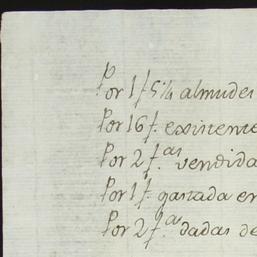 Por 1 f. 5 ¼ almudes
Por 16 f. existente
Por 2 f.as vendida
Por 1 f. gastada en
Por 2 f.as dadas de